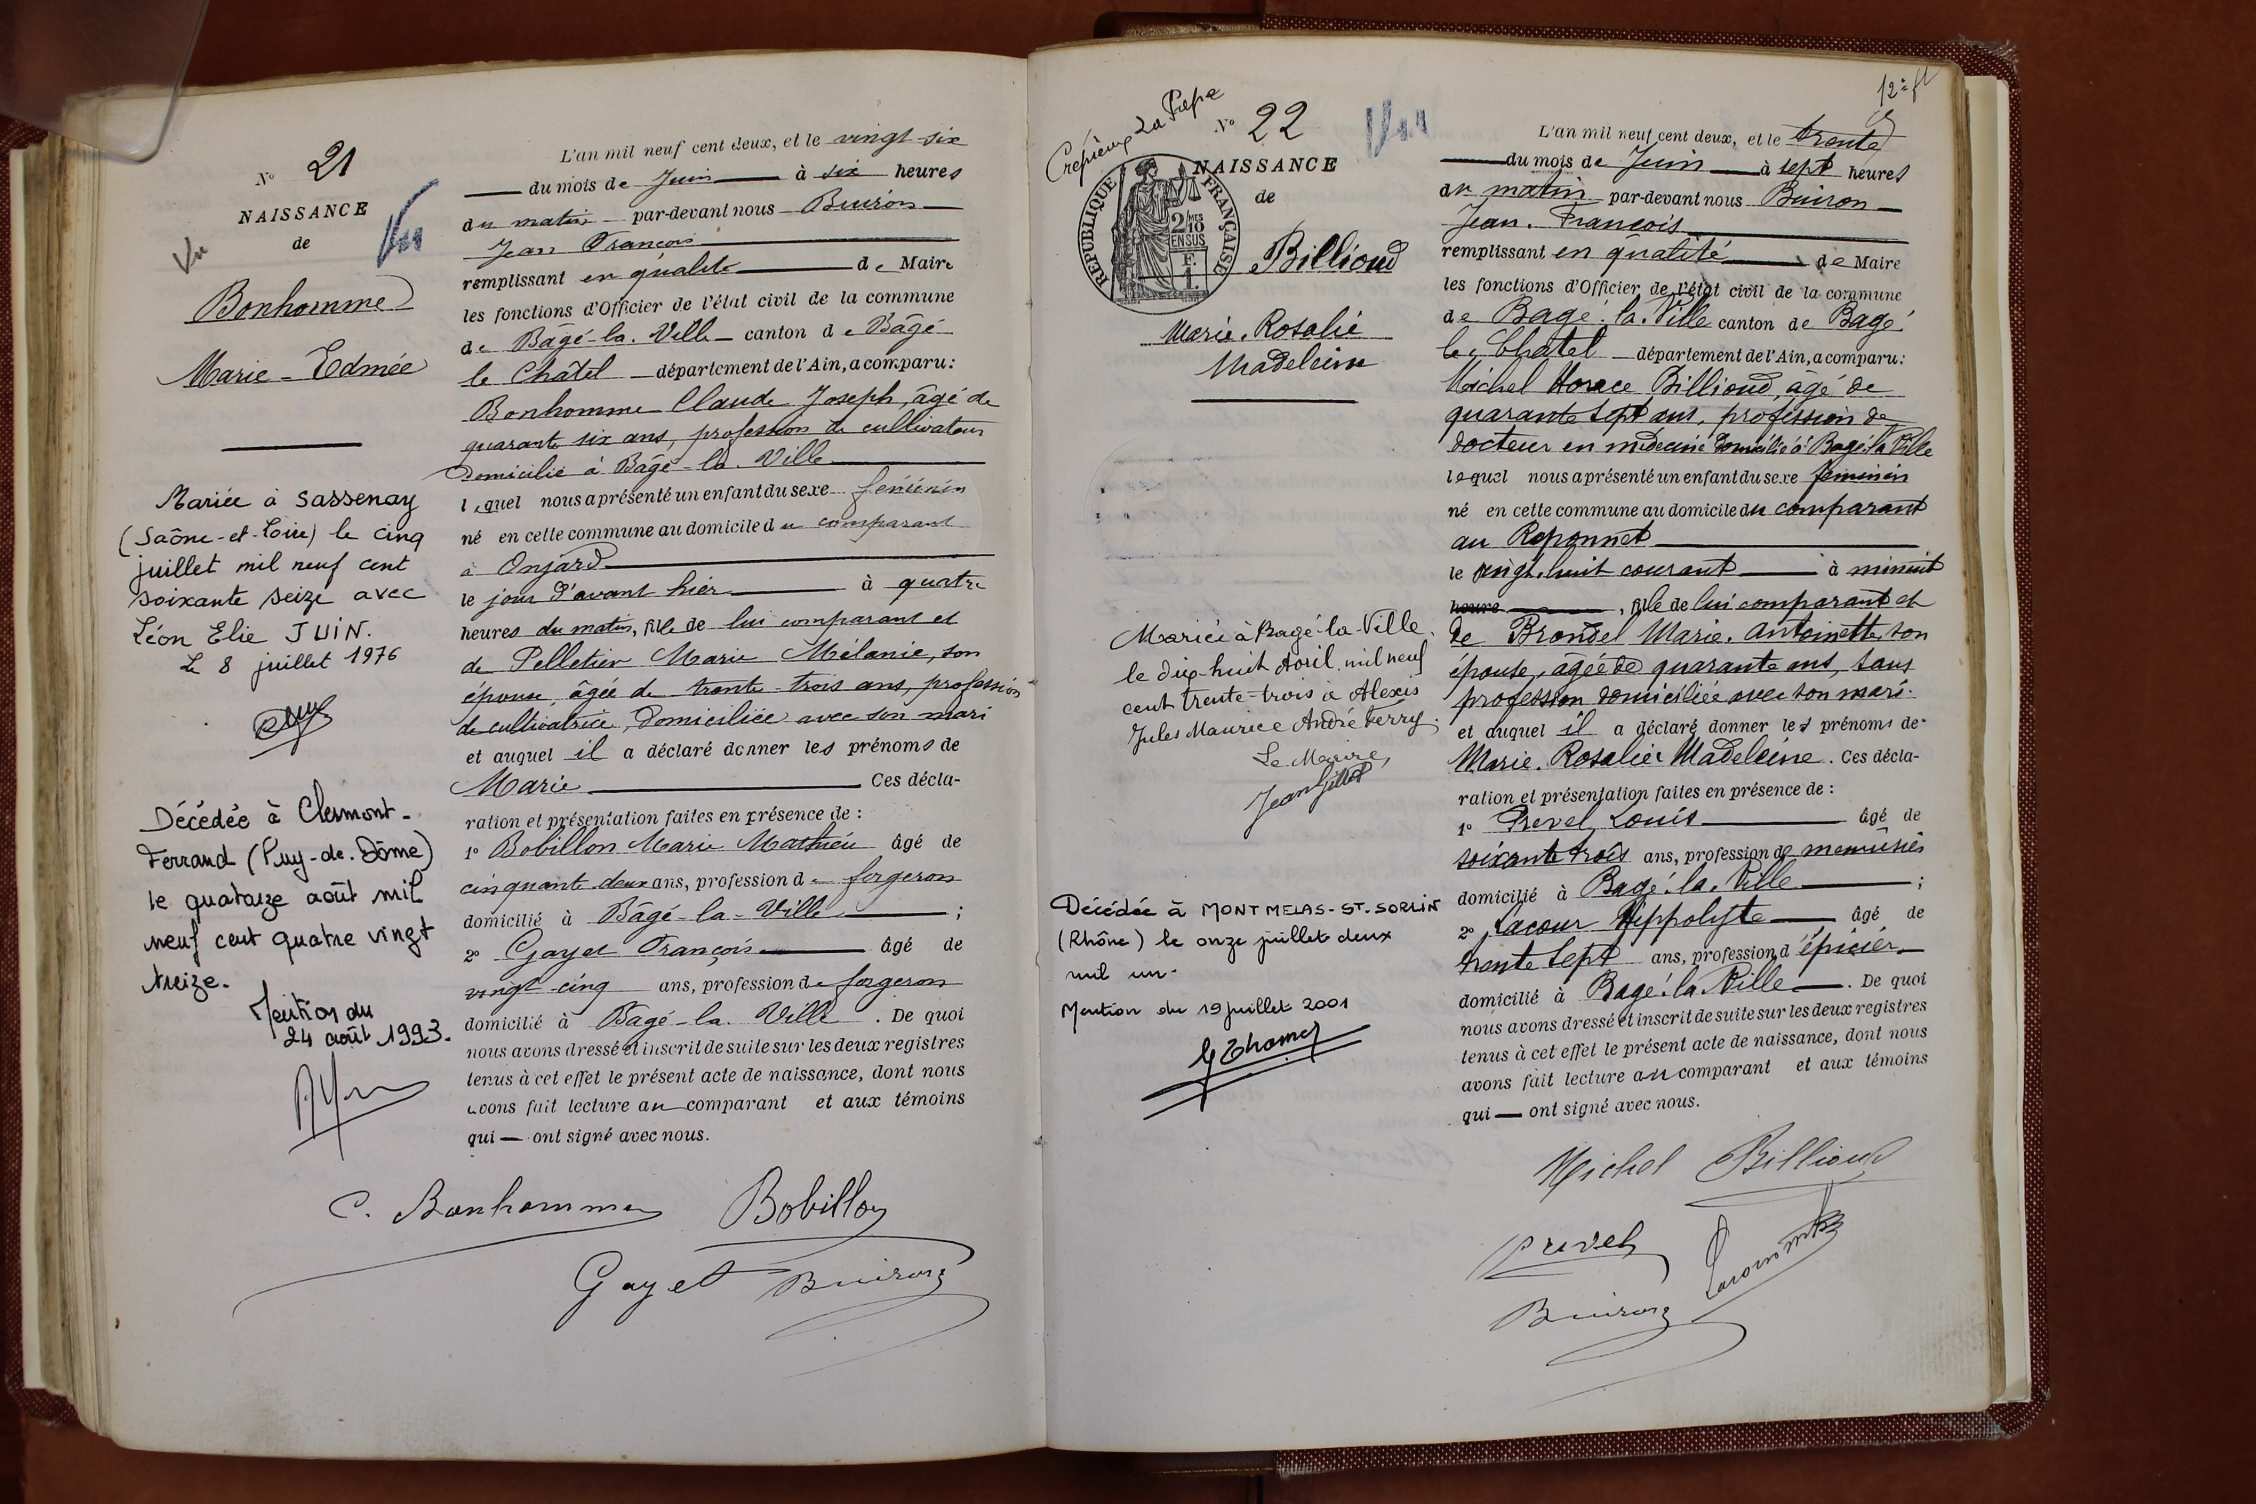 N° 21
NAISSANCE
de
Vu
Vu
Bonhomme
Marie-Edmée
Mariée à Sassenay
(Saône-et-Loire) le cinq
juillet mil neuf cent
soixante seize avec
Léon Elie JUIN.
Le 8 juillet 1976
Décédée à Clermont-
Ferrand (Puy-de-Dôme)
le quatorze août mil
neuf cent quatre vingt
treize.
Mention du
24 août 1993.
L'an mil neuf cent deux, et le vingt-six
du mois de Juin à six heures
du matin par-devant nous Buiron
Jean François
remplissant en qualité de Maire
les fonctions d'Officier de l'état civil de la commune
de Bâgé-la-Ville canton de Bâgé
le Châtel département de l'Ain, a comparu:
Bonhomme Claude Joseph, âgé de
quarante six ans, profession de cultivateur
domicilié à Bâgé-la-Ville
lequel nous a présenté un enfant du sexe féminin
né en cette commune au domicile du comparant
à Onjard
le jour d'avant hier à quatre
heures du matin, fille de lui comparant et
de Pelletier Marie Mélanie, son
épouse, âgée de trente-trois ans, profession
de cultivatrice, domiciliée avec son mari
et auquel il a déclaré donner les prénoms de
Marie Ces décla-
ration et présentation faites en présence de :
1° Bobillon Marie Mathieu âgé de
cinquante-deux ans, profession de forgeron
domicilié à Bâgé-la-Ville ;
2° Gayet François âgé de
vingt-cinq ans, profession de forgeron
domicilié à Bâgé-la-Ville . De quoi
nous avons dressé et inscrit de suite sur les deux registres
tenus à cet effet le présent acte de naissance, dont nous
avons fait lecture au comparant et aux témoins
qui — ont signé avec nous.
C. Bonhomme Bobillon
Gayet Buiron
Crépieux la Pape
N° 22
Vu
NAISSANCE
de
REPUBLIQUE FRANÇAISE
2/10 MES
EN SUS
F.
1.
Billioud
Marie-Rosalie
Madeleine
Mariée à Bagé-la-Ville
le dix-huit Avril mil neuf
cent trente-trois à Alexis
Jules Maurice André Ferry.
Le Maire,
Jean Gillet
Décédée à MONTMELAS-ST-SORLIN
(Rhône) le onze juillet deux
mil un.
Mention du 19 juillet 2001
12è ft
L'an mil neuf cent deux, et le trente
du mois de Juin à sept heures
du matin par-devant nous Buiron
Jean-François
remplissant en qualité de Maire
les fonctions d'Officier de l'état civil de la commune
de Bagé-la-Ville canton de Bagé
le Chatel département de l'Ain, a comparu:
Michel Horace Billioud, âgé de
quarante sept ans, profession de
docteur en médecine domicilié à Bagé-la-Ville
lequel nous a présenté un enfant du sexe féminin
né en cette commune au domicile du comparant
au Reponnet
le vingt-huit courant à minuit
heure , fille de lui comparant et
de Brondel Marie-Antoinette, son
épouse, âgée de quarante ans, sans
profession domiciliée avec son mari.
et auquel il a déclaré donner les prénoms de
Marie-Rosalie Madeleine. Ces décla-
ration et présentation faites en présence de :
1° Prevel Louis âgé de
soixante trois ans, profession de menuisier
domicilié à Bagé-la-Ville ;
2° Lacour Hippolyte âgé de
trente sept ans, profession d'épicier
domicilié à Bagé-la-Ville . De quoi
nous avons dressé et inscrit de suite sur les deux registres
tenus à cet effet le présent acte de naissance, dont nous
avons fait lecture au comparant et aux témoins
qui — ont signé avec nous.
Michel Billioud
Prevel
Buiron